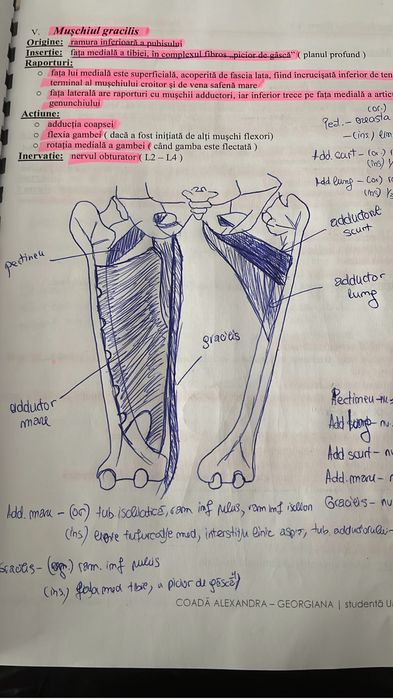 V. Mușchiul gracilis
Origine: ramura inferioară a pubisului
Inserție: fața medială a tibiei, în complexul fibros „picior de gâscă” ( planul profund )
Raporturi:
o fața lui medială este superficială, acoperită de fascia lata, fiind încrucișată inferior de ten
terminal al mușchiului croitor și de vena safenă mare
o fața laterală are raporturi cu mușchii adductori, iar inferior trece pe fața medială a artic
genunchiului
Acțiune:
o adducția coapsei
o flexia gambei ( dacă a fost inițiată de alți mușchi flexori)
o rotația medială a gambei ( când gamba este flectată )
Inervație: nervul obturator ( L2 – L4 )
(or.)
Ped. - creasta
- (ins) lin
Add. scurt - (or.)
(ins)
Add lung - (or)
(ins)
pectineu
adductor
mare
gracilis
adductor
scurt
adductor
lung
Pectineu - nu
Add lung - nu.
Add scurt - nu
Add. mare -
Gracilis - nu
Add. mare - (or) tub. ischiatică, ram inf pubis, ram inf ischion
(ins) med, interstițiu linie aspr, tub. adductorului
Gracilis - ram. inf pubis
(ins) fața med tibie, a picior de gâscă"
COADĂ ALEXANDRA – GEORGIANA | studentă U